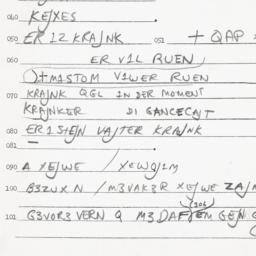 040 KEJXES
050 ER 1Z KRANK 051 + QAP
060 ER V1L RUEN
+M1STOM V1WER RUEN
070 KRANK QGL 1N DER MOMENT
KRANKER D1 GANCECAJT
080 ER1 STEJN VAJTER KRANK
081
090 A XEJWE / XEWQ1M
100 B3ZUXN / M3VAK3R XEJWE
106
101 G3VOR3VERN Q M3DAF EM GEJN